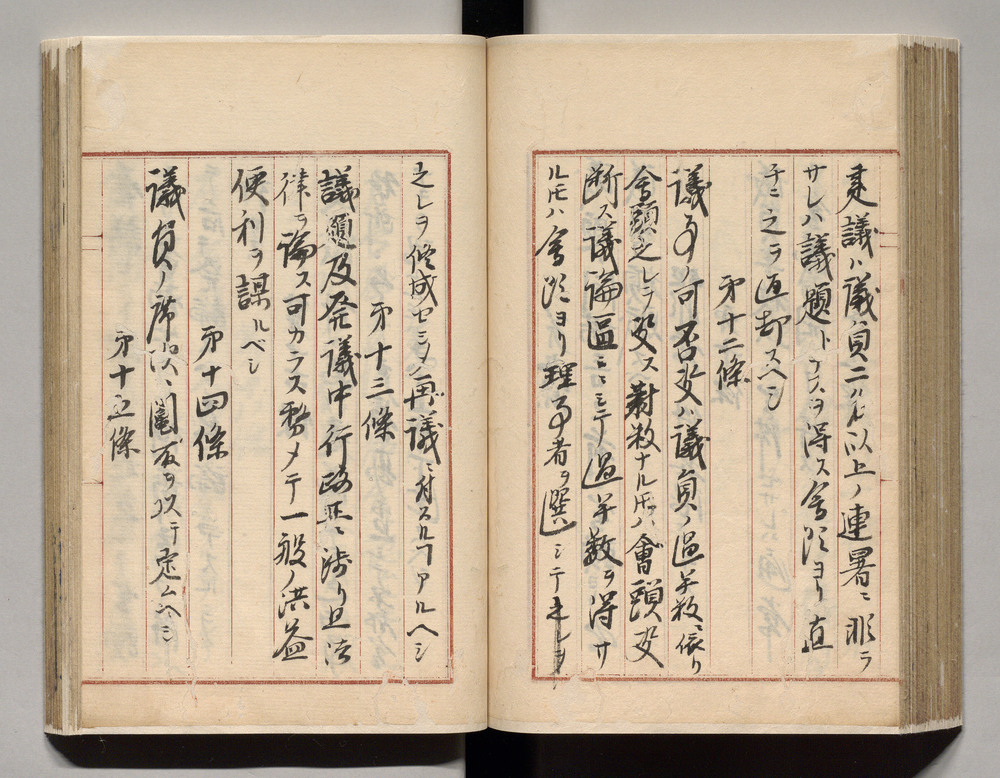 建議ハ議員二人以上ノ連署ニ非ラ
サレハ議題トナスヲ得ス會頭ヨリ直
チニ之ヲ返却スヘシ
第十二條
議事ノ可否決ハ議員ノ過半数ニ依リ
會頭之レヲ決ス若シ数ナル時ハ會頭決
断ス議論區々ニシテ過半数ヲ得サ
ル時ハ會頭ヨリ理事者ヲ選ミシテ之レヲ
之レヲ修成セシメ再議ニ対スルヿアルヘシ
第十三條
議題及発議中行政上ニ渉リ且法
律ヲ論ス可カラス務メテ一般ノ洪益
便利ヲ謀ルベシ
第十四條
議員ノ席次ハ鬮ヲ以テ定ムヘシ
第十五條